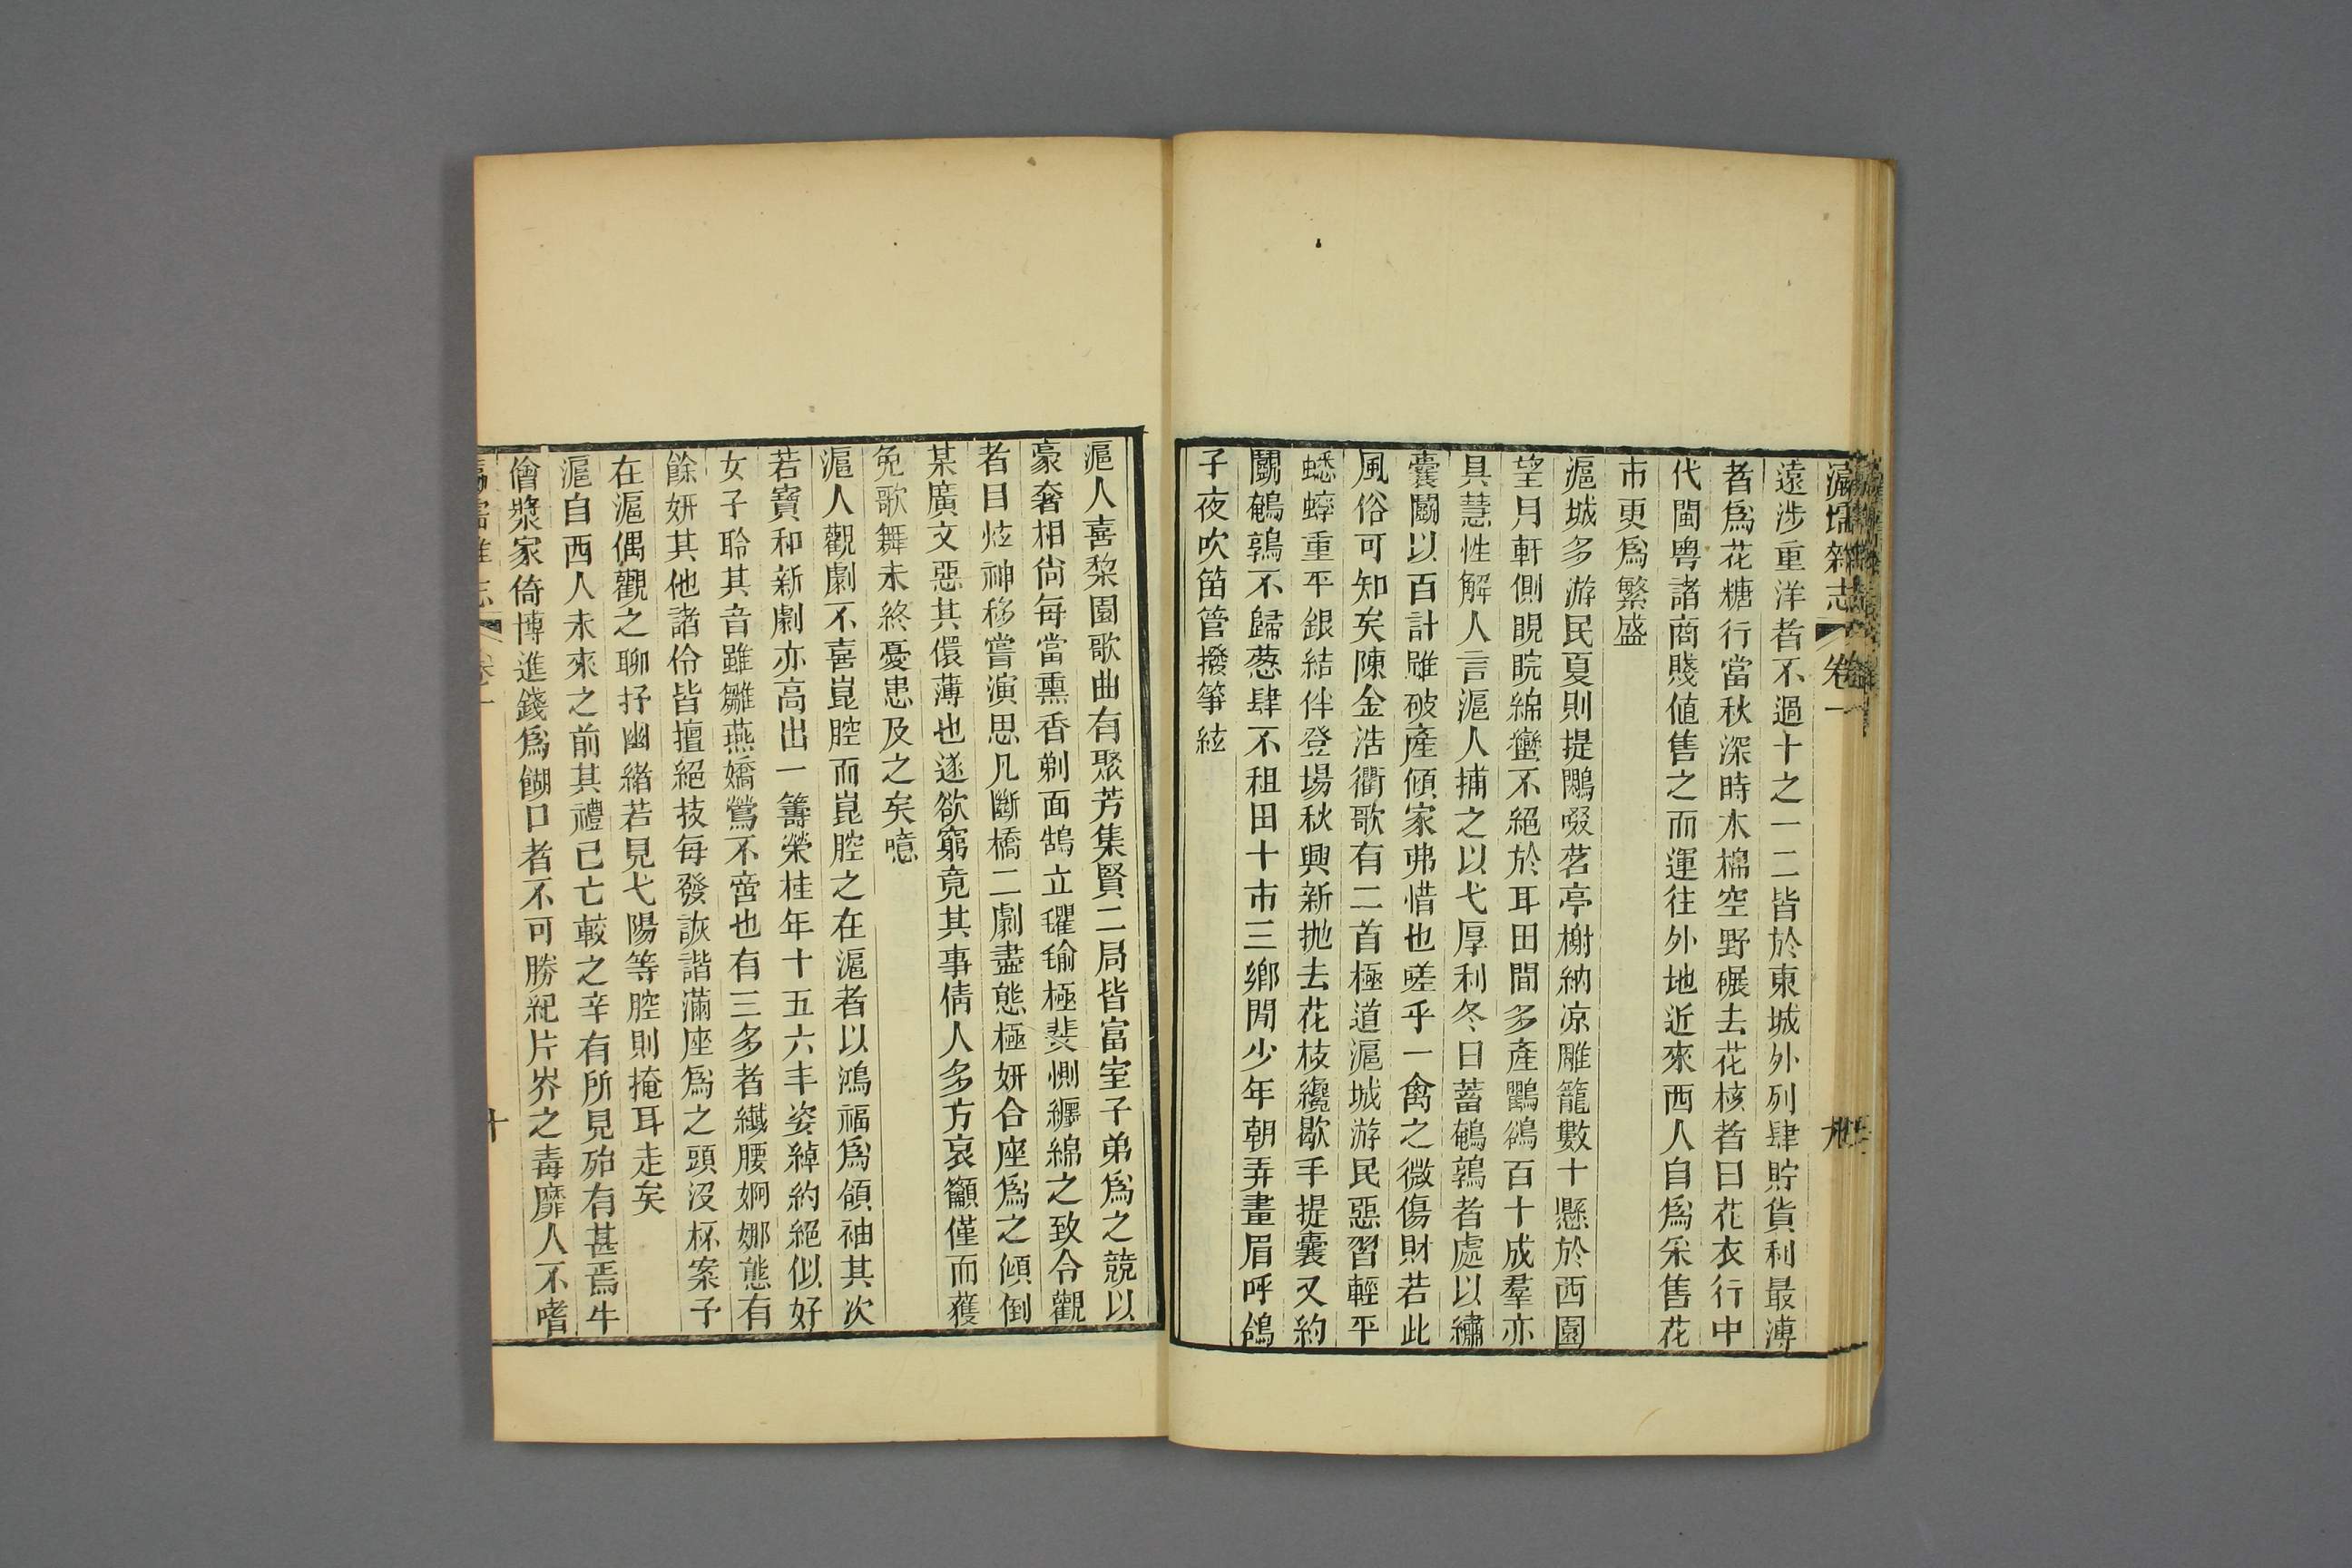 瀛壖雜志 卷一 九
遠涉重洋者不過十之一二皆於東城外列肆貯貨利最溥
者爲花糖行當秋深時木棉空野碾去花核者曰花衣行中
代閩粵諸商賤値售之而運往外地近來西人自爲采售花
市更爲繁盛
滬城多游民夏則提鷳啜茗亭榭納凉雕籠數十懸於西園
望月軒側睍睆綿蠻不絕於耳田間多產鸜鵒百十成羣亦
具慧性解人言滬人捕之以弋厚利冬日蓄鵪鶉者處以繡
囊鬭以百計雖破產傾家弗惜也嗟乎一禽之微傷財若此
風俗可知矣陳金浩衢歌有二首極道滬城游民惡習輕平
蟋蟀重平銀結伴登場秋興新拋去花枝纔歇手提囊又約
鬭鵪鶉不歸葱肆不租田十市三鄉閒少年朝弄畫眉呼鴿
子夜吹笛管撥箏絃
滬人喜棃園歌曲有聚芳集賢二局皆富室子弟爲之競以
豪奢相尙每當熏香剃面鵠立氍毹極斐惻纏綿之致令觀
者目炫神移嘗演思凡斷橋二劇盡態極妍合座爲之傾倒
某廣文惡其儇薄也遂欲窮竟其事倩人多方哀籲僅而獲
免歌舞未終憂患及之矣噫
滬人觀劇不喜崑腔而崑腔之在滬者以鴻福爲領袖其次
若寶和新劇亦高出一籌榮桂年十五六丰姿綽約絕似好
女子聆其音雖雛燕嬌鶯不啻也有三多者纖腰婀娜態有
餘妍其他諸伶皆擅絕技每發詼諧滿座爲之頭沒杯案予
在滬偶觀之聊抒幽緒若見弋陽等腔則掩耳走矣
滬自西人未來之前其禮已亡較之辛有所見殆有甚焉牛
儈漿家倚博進錢爲餬口者不可勝紀片芥之毒靡人不嗜
瀛壖雜志 卷一 十